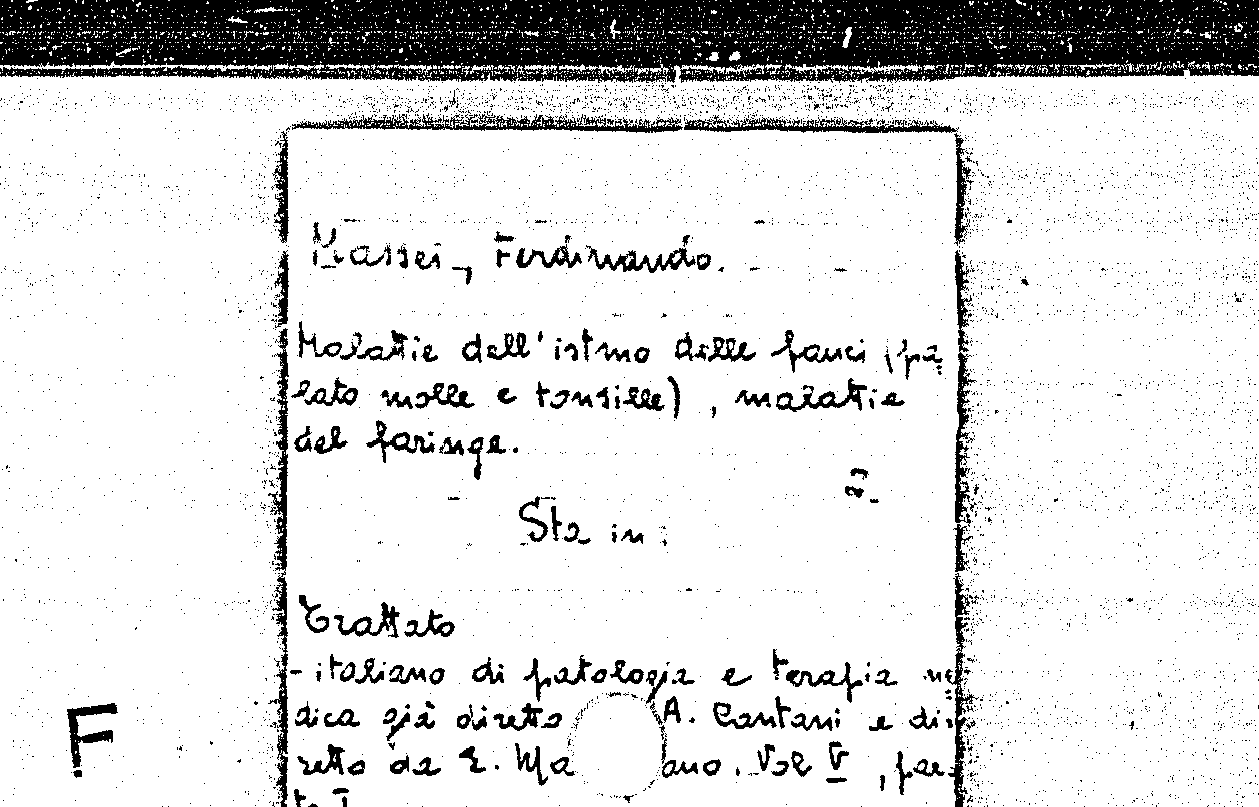 Massei, Ferdinando.
Malattie dell'istmo delle fauci (pa=
lato molle e tonsille), malattie
del faringe.
Sta in:
Trattato
- italiano di patologia e terapia me=
dica già diretto A. Cantani e di=
retto da E. Ma ano. Vol V, par=
te I
F